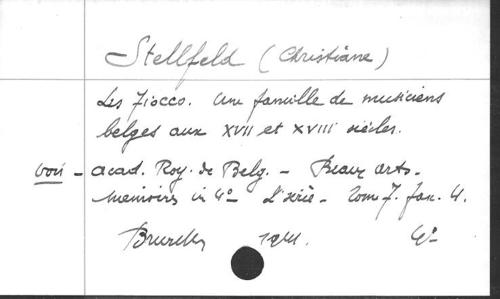 Stellfeld (Christiane)
Les Fiocco. Une famille de musiciens
belges aux XVII et XVIII siècles.
voir - Acad. Roy. de Belg. - Beaux Arts -
Memoires in 4° - 2e serie - Tom 7. fasc. 4.
Bruxelles 1941. 4°